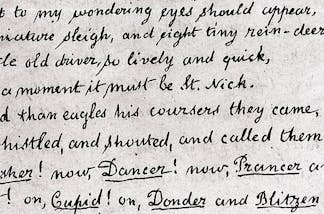 t to my wondering eyes should appear,
niature sleigh, and eight tiny rein-deer
le old driver, so lively and quick,
a moment it must be St. Nick.
d than eagles his coursers they came,
histled, and shouted, and called them
sher! now, Dancer! now, Prancer a
! on, Cupid! on, Donder and Blitzen